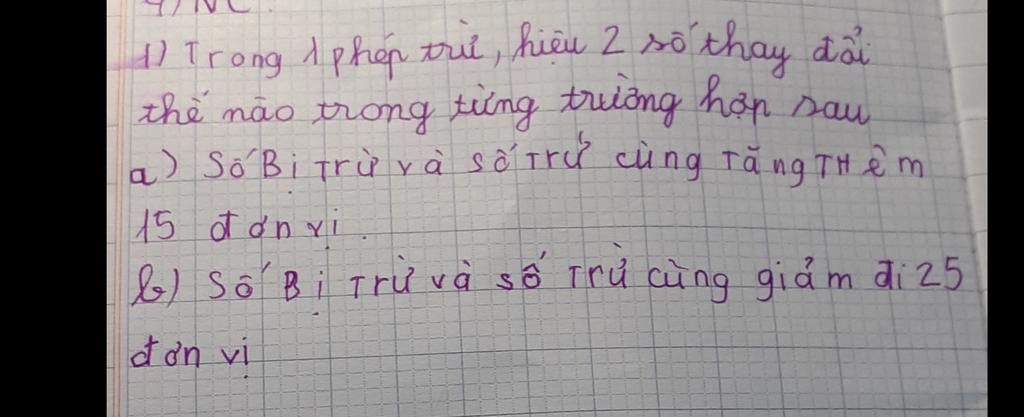 1) Trong 1 phép trừ, hiệu 2 số thay đổi
thế nào trong từng trường hợp sau
a) Số Bị Trừ và số Trừ cùng Tăng THêm
15 đơn vị.
b) Số Bị Trừ và số Trừ cùng giảm đi 25
đơn vị